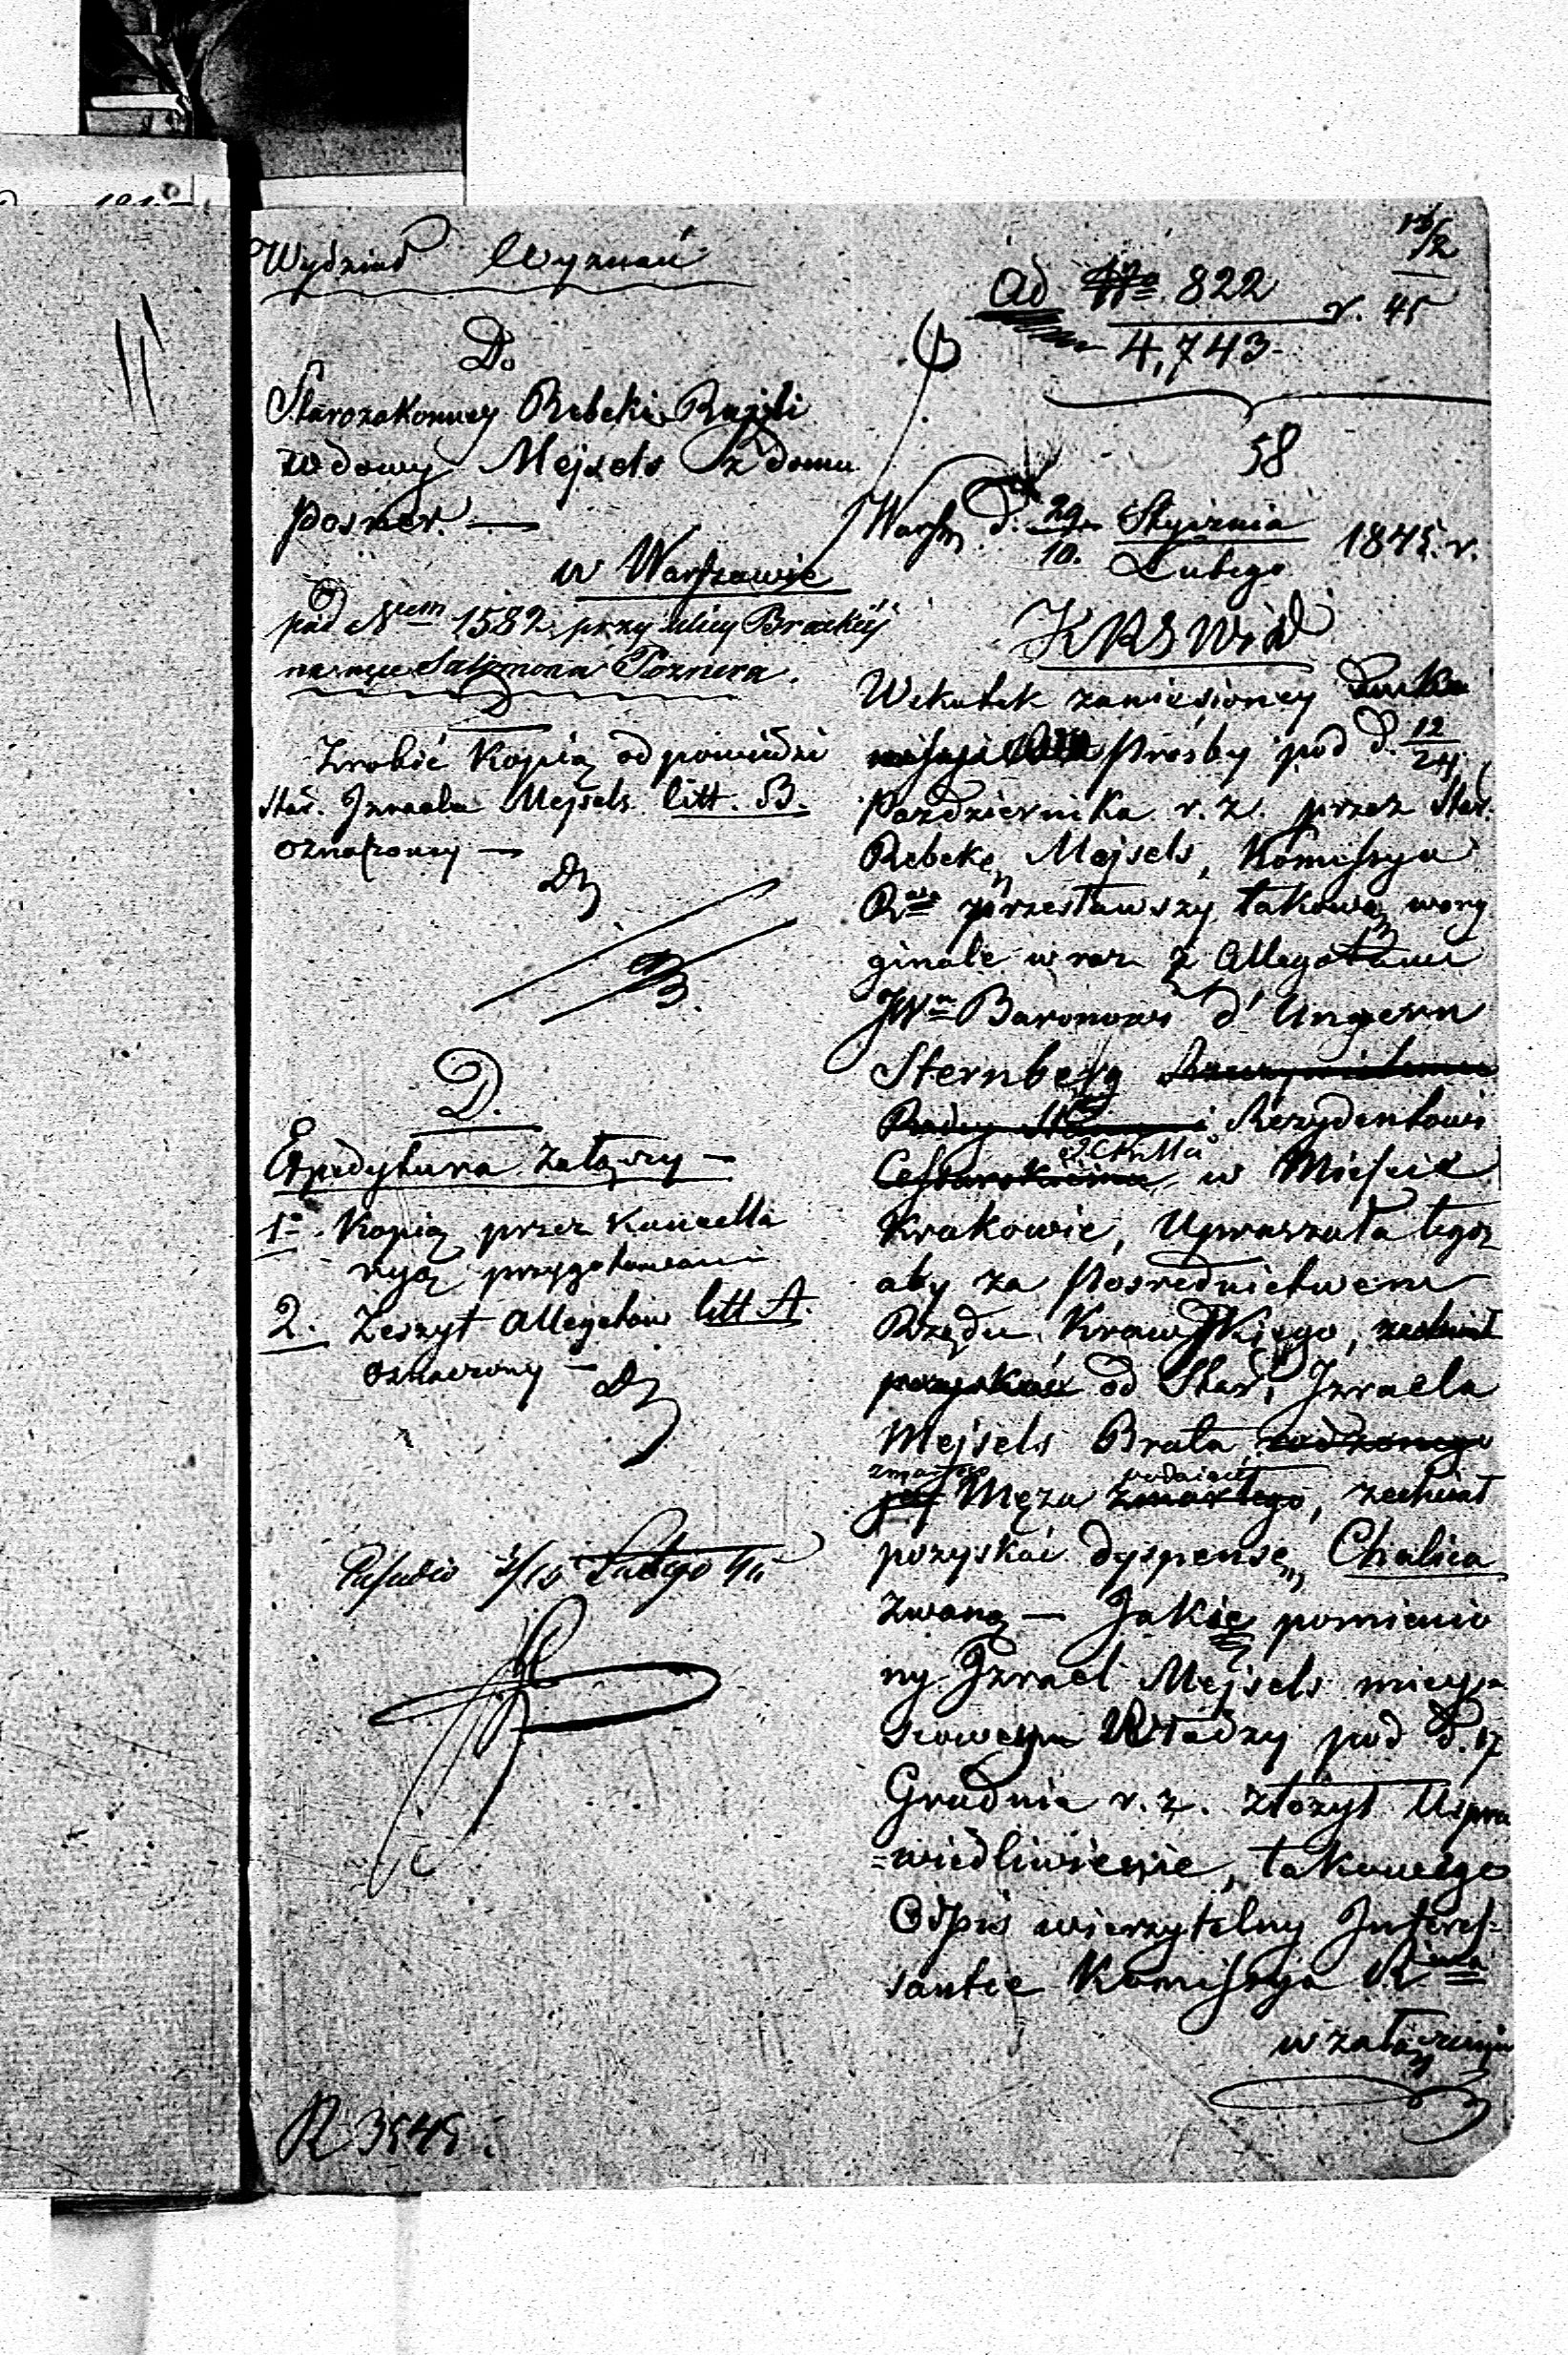 Wydział Wyznań
Do
Starozakonney Rebeki Ruchli
wdowy Mejsels z domu
Posner. —
w Warszawie
pod Num 1582 przy ulicy Brackiéj
na ręce Salomona Poznera.
Zrobić Kopią odpowiedzi
Star. Izraela Mejsels litt. B.
oznaczoney —
D.
Expedytura załączy —
1o. Kopią przez Kancella
ryą przygotowaną
2. Zeszyt Allegatów litt A.
oznaczony —
Lutego
R 3545.
12/2
45
ad No 822 r.
4,743
58
Warsz. d. 29/10. Stycznia/Lutego 1845. r.
KRSWiD
Wskutek zaniesioney
prośby pod d. 12/24
Pazdziernika r. z. przez Star.
Rebekę Mejsels, Kommissya
Rwa przesławszy takową w ory
ginale wraz z Allegatami
JWu Baronowi d'Ungern
Sternberg
Rezydentowi
w Mieście
Krakowie, Upraszała tegoż
aby za Pośrednictwem
Rządu Krawskiego,
od Star. Izraela
Mejsels Brata rodzonego
zmarłego Męża zmarłego, zechciał
pozyskać dyspensę, Chalica
zwaną — Jakie pomienio
ny Izrael Mejsels miejs
scowey Władzy pod d. 17
Grudnia r. z. złożył Uspra
=wiedliwienie, takowego
Odpis wierzytelny Interes=
santce Kommissya Rwa
w załączeniu